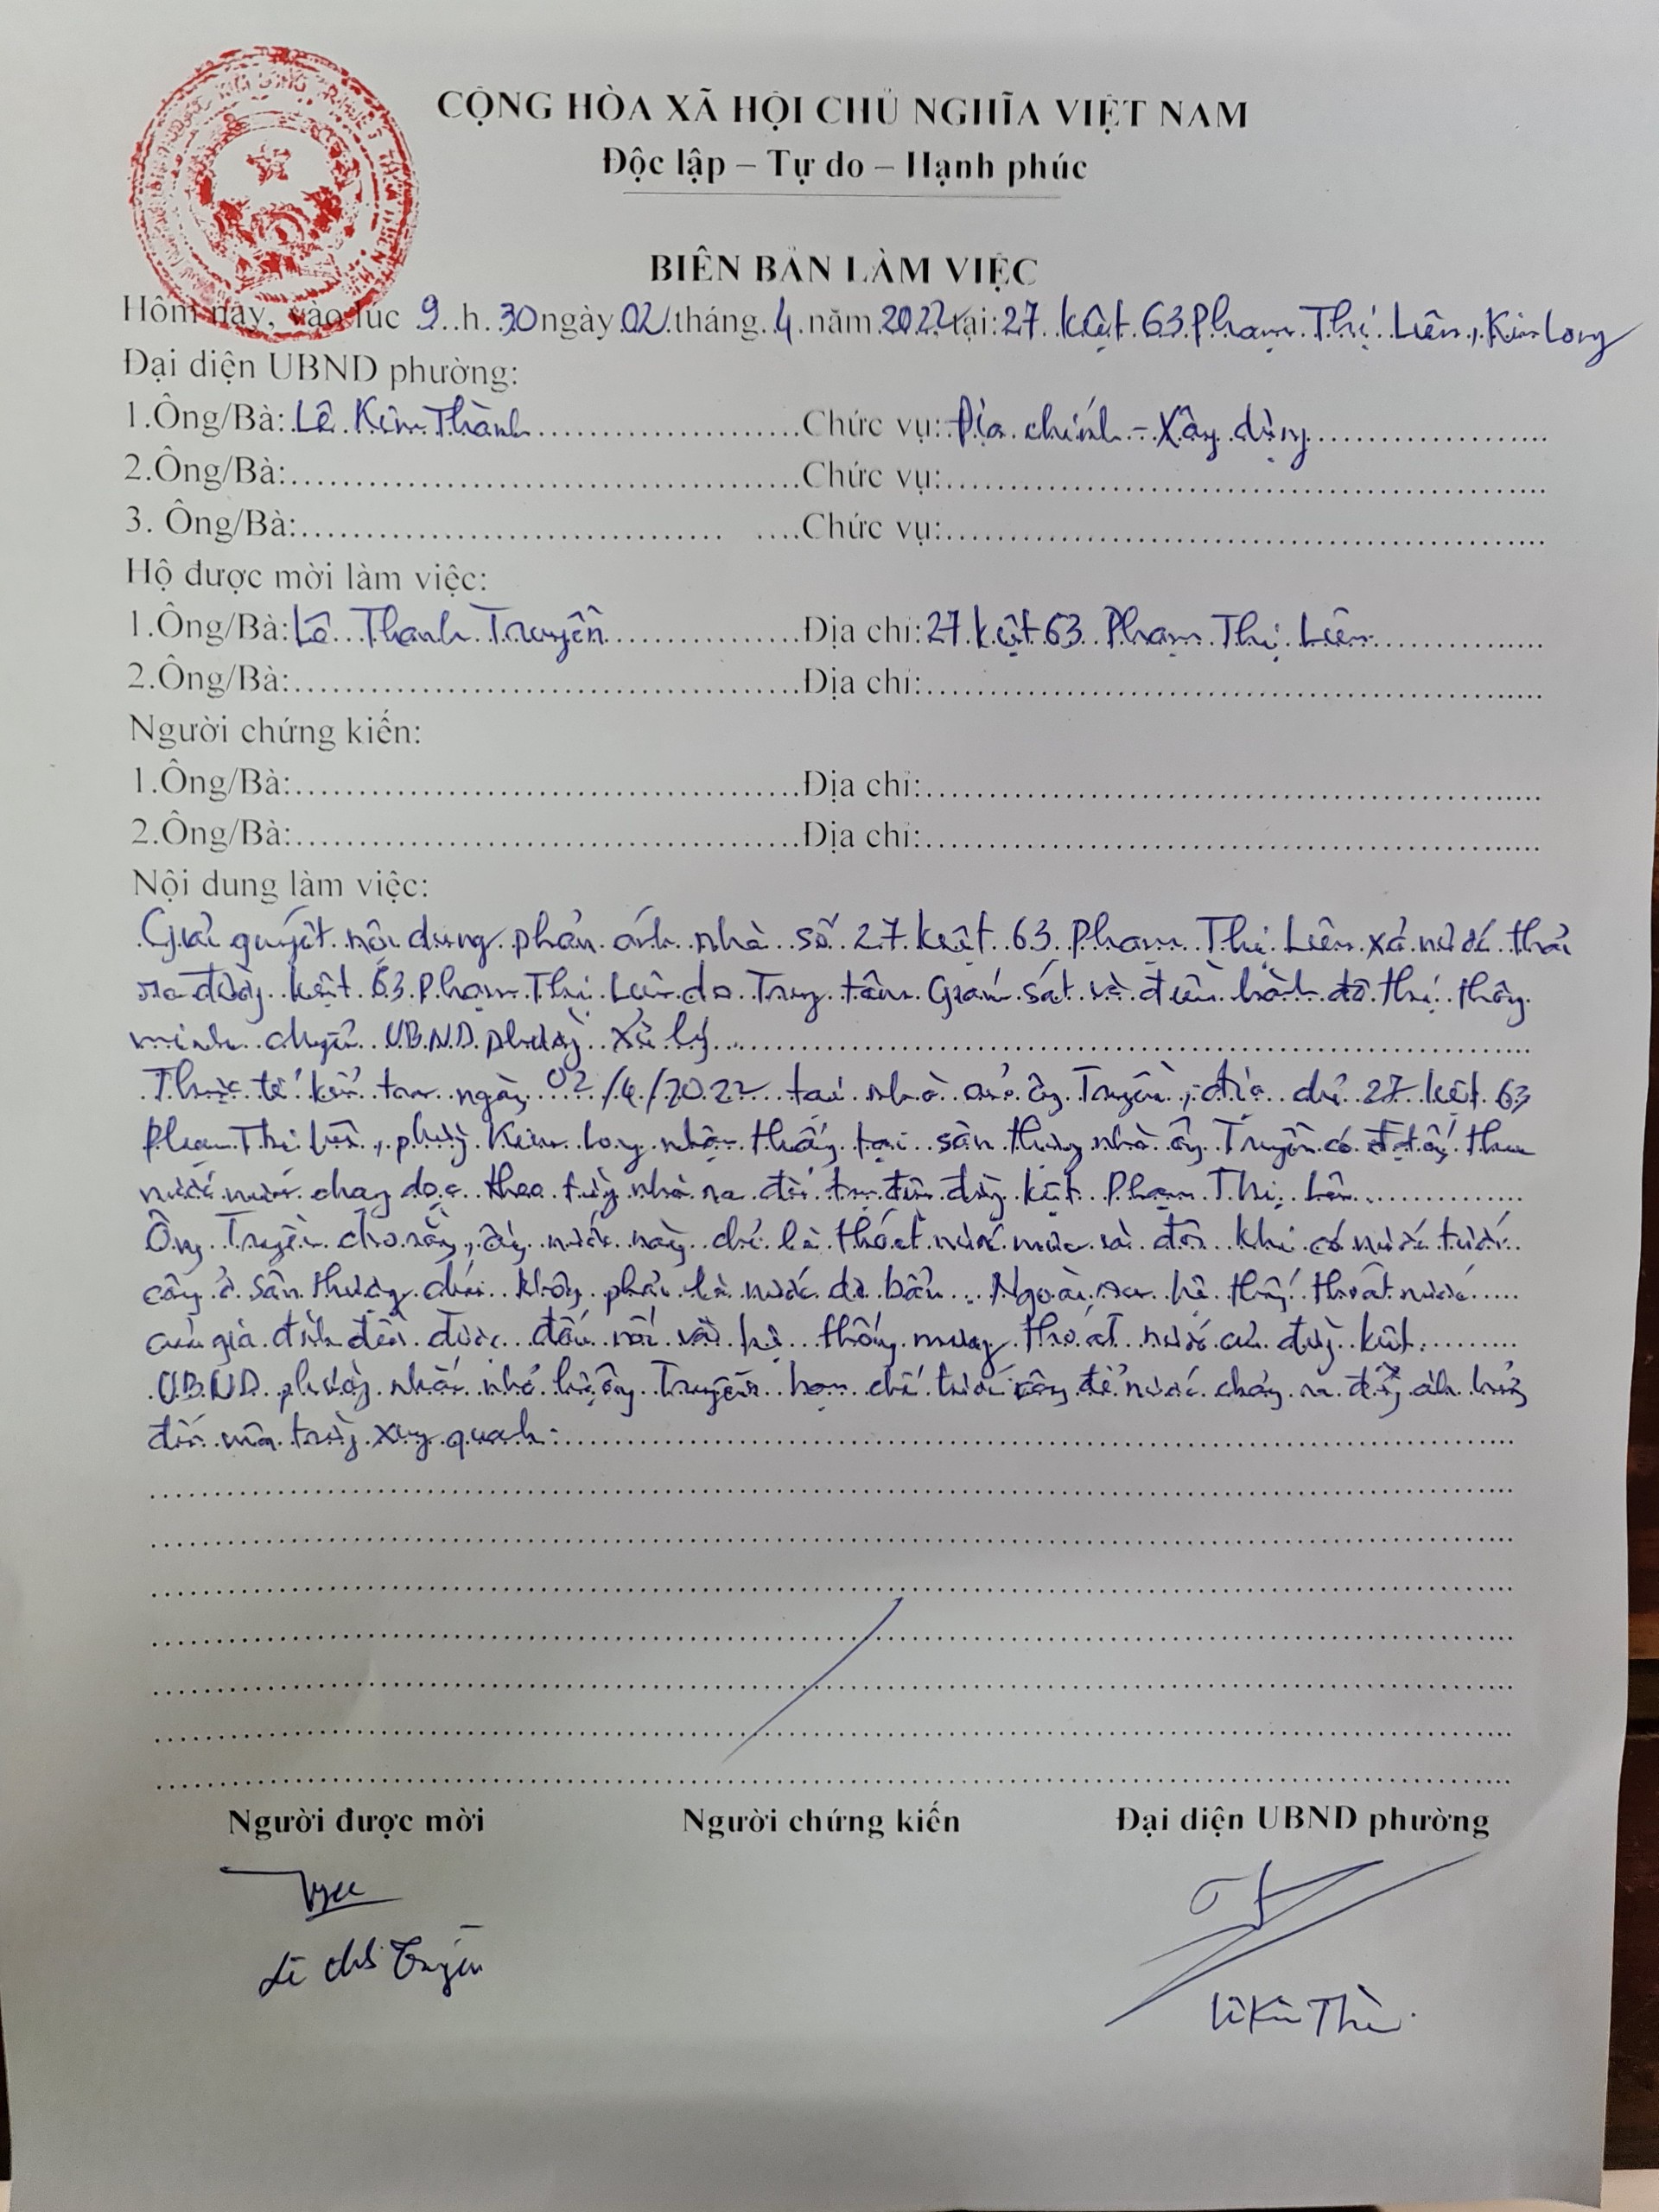 CỘNG HÒA XÃ HỘI CHỦ NGHĨA VIỆT NAM
Độc lập – Tự do – Hạnh phúc
BIÊN BẢN LÀM VIỆC
Hôm nay, vào lúc 9 h 30 ngày 02 tháng 4 năm 2022 tại: 27 kiệt 63 Phạm Thị Liên, Kim Long
Đại diện UBND phường:
1.Ông/Bà: Lê Kim Thành Chức vụ: Địa chính - Xây dựng
2.Ông/Bà: Chức vụ:
3. Ông/Bà: Chức vụ:
Hộ được mời làm việc:
1.Ông/Bà: Lê Thanh Truyền Địa chỉ: 27 kiệt 63 Phạm Thị Liên
2.Ông/Bà: Địa chỉ:
Người chứng kiến:
1.Ông/Bà: Địa chỉ:
2.Ông/Bà: Địa chỉ:
Nội dung làm việc:
Giải quyết nội dung phản ánh nhà số 27 kiệt 63 Phạm Thị Liên xả nước thải
ra đường kiệt 63 Phạm Thị Liên do Trung tâm Giám sát và điều hành đô thị thông
minh chuyển UBND phường xử lý.
Thực tế kiểm tra ngày 02/4/2022 tại nhà của ông Truyền, địa chỉ 27 kiệt 63
Phạm Thị Liên, phường Kim Long nhận thấy tại sân thượng nhà ông Truyền có đặt ống thu
nước mưa chạy dọc theo tường nhà ra đường kiệt Phạm Thị Liên
Ông Truyền cho rằng, ống nước này chỉ là thoát nước mưa và đôi khi có nước tưới
cây ở sân thượng chứ không phải là nước dơ bẩn. Ngoài ra hệ thống thoát nước
của gia đình đều được đấu nối với hệ thống mương thoát nước của đường kiệt.
UBND phường nhắc nhở hộ ông Truyền hạn chế tưới cây để nước chảy ra đường ảnh hưởng
đến môi trường xung quanh.
Người được mời Người chứng kiến Đại diện UBND phường
Lê Truyền
Lê Kim Thành